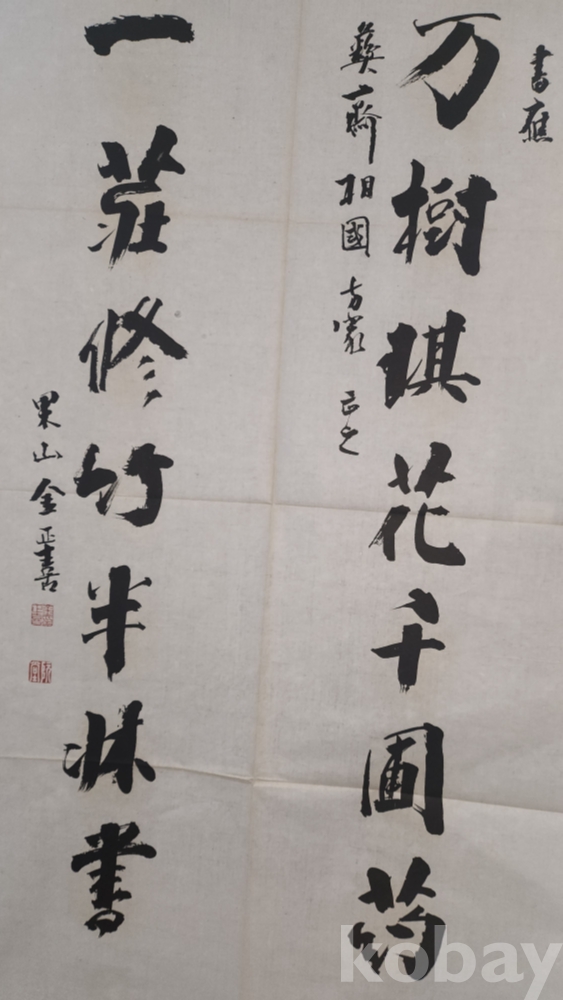 書應
万樹琪花千圃葯
彛齋相國方家正之
一莊修竹半牀書
果山金正喜
kobay